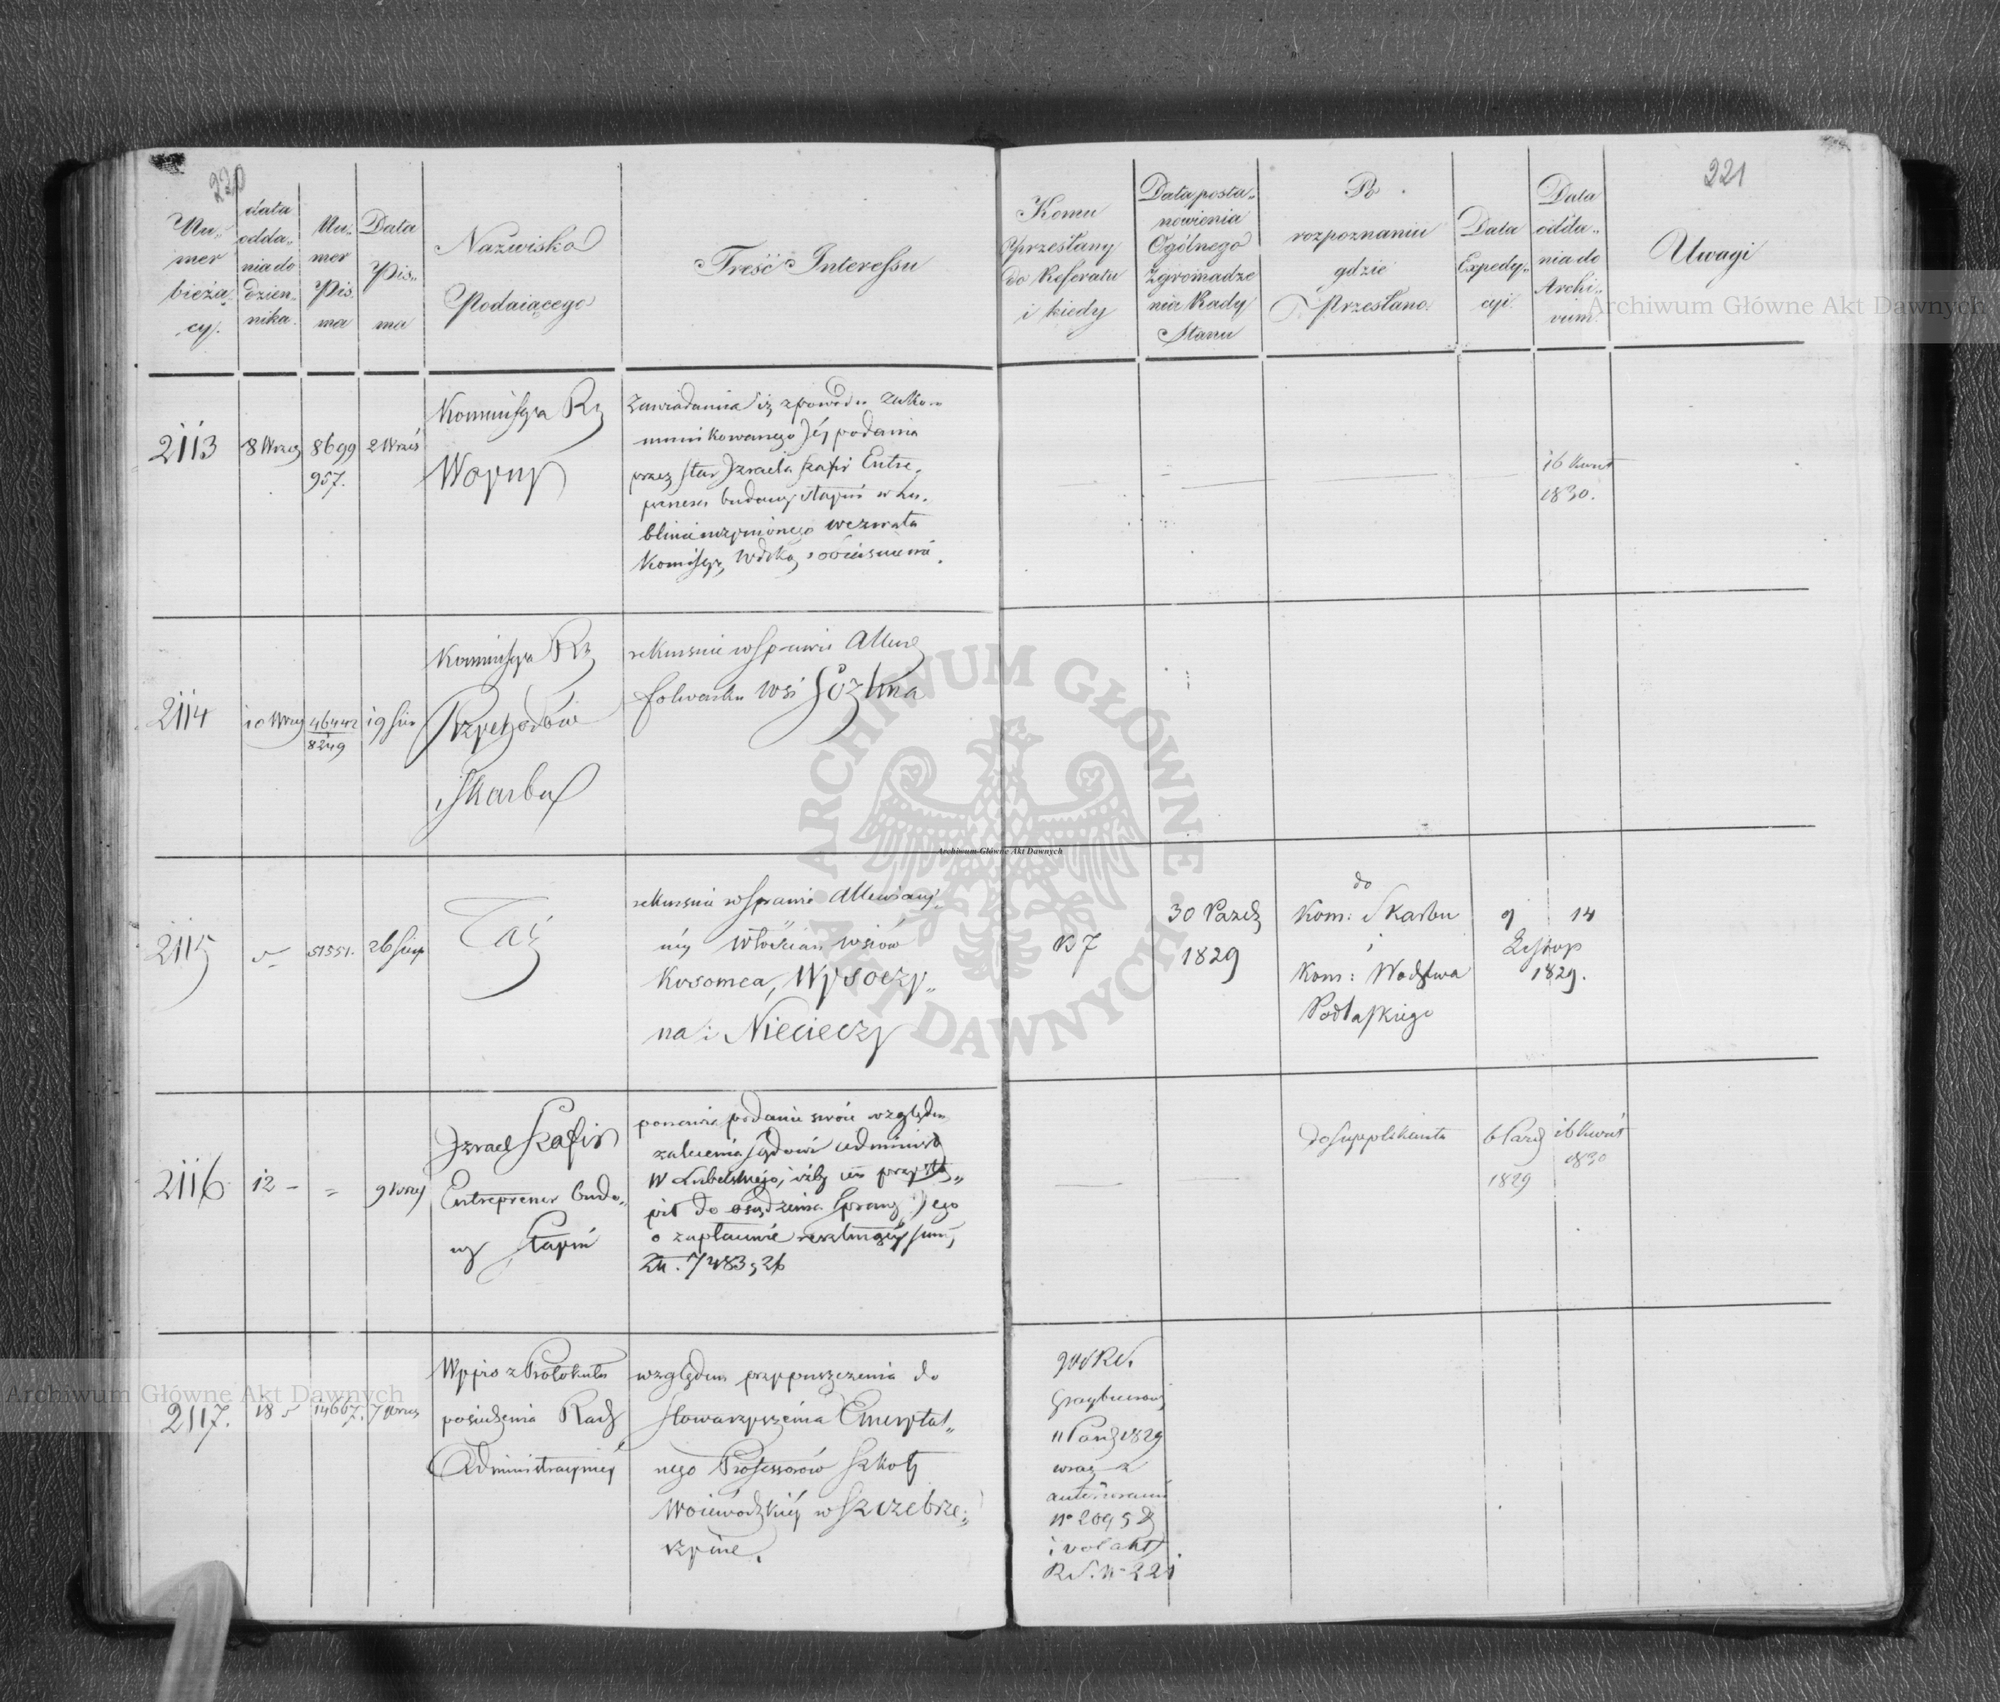 220
Nu-
mer
bieżą-
cy.
data
odda-
nia do
dzien-
nika.
Nu-
mer
Pis-
ma
Data
Pis-
ma
Nazwisko
Podaiącego
Treść Interessu
221
Komu
przesłany
do Referatu
i kiedy
Data posta-
nowienia
Ogólnego
Zgromadze
nia Rady
Stanu
Po
rozpoznaniu
gdzie
Przesłano.
Data
Expedy-
cyi
Data
odda-
nia do
Archi-
vum.
Uwagi
2113
8 Wrzes
8699
957.
2 Wrześ
Kommissya Rz
Woyny
Zawiadamia iż z powodu zako-
munikowanego Jéy podania
przez Star. Izraela Szafir Entre-
prenera budowy stayni w Lu-
blinie wezwała
Kommissyę Wdzką o obiaśnienie.
16 Kwiet
1830.
2114
10 Wrześ
46442
8249
19 Sier
Kommissya Rz
Przychodów
i Skarbu
rekursuie w sprawie
folwarku wsi
2115
51551.
26 Sierp
Taż
rekursuie w sprawie
néy Włościan wsiów
Kosomca, Wysoczy-
na i Niecieczy
B 7
30 Pazdz
1829
do
Kom: Skarbu
i
Kom: Wodztwa
Podlaskiego
9 14
Listop
1829.
2116
12 -
=
9 Wrześ
Izrael Szafir
Entreprener budo-
wy Stayni
ponawia podanie swoie względem
zalecenia Sądowi Administr
W Lubelskiego, iżby przystą-
pił do osądzenia sprawy Jego
o zapłacenie resztuiącéy summy
Złt. 7483, 26
do supplikanta
6 Pazd
1829
16 Kwiet
1830
2117.
18
14667.
7 Wrzes
Wypis z Protokułu
posiedzenia Rady
Administracyinéy
względem przypuszczenia do
stowarzyszenia Emerytal-
nego Professorów Szkoły
Woiewodzkiéy w Szczebrze-
szynie.
11 Pazd 1829
wraz z
No 2095
R.S. No 221
Archiwum Główne Akt Dawnych
Archiwum Główne Akt Dawnych
ARCHIWUM GŁÓWNE AKT DAWNYCH
Archiwum Główne Akt Dawnych